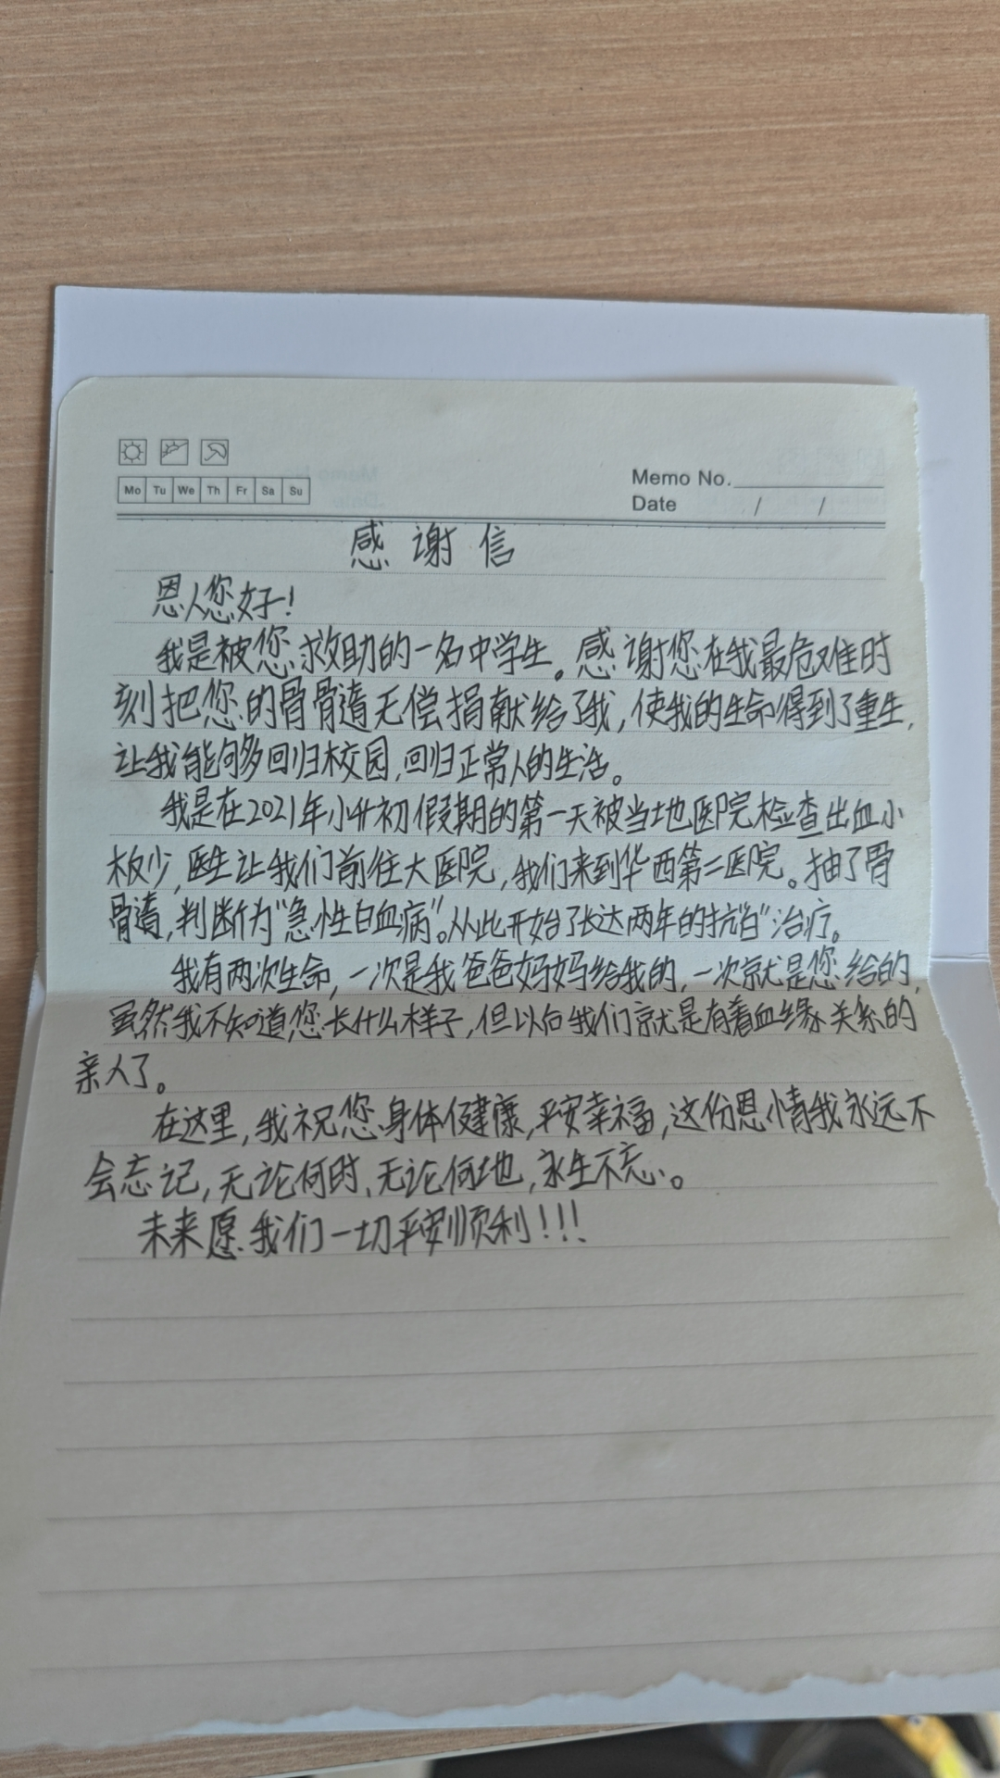 Mo Tu We Th Fr Sa Su
Memo No.
Date / /
感谢信
恩人您好!
我是被您救助的一名中学生。感谢您在我最危难时
刻把您的骨骨髓无偿捐献给了我,使我的生命得到了重生,
让我能够多回归校园,回归正常人的生活。
我是在2021年小升初假期的第一天被当地医院检查出血小
板少,医生让我们前往大医院,我们来到华西第二医院。抽了骨
骨髓,判断为“急性白血病”。从此开始了长达两年的抗白“治疗。
我有两次生命,一次是我爸爸妈妈给我的,一次就是您给的,
虽然我不知道您长什么样子,但以后我们就是有着血缘关系的
亲人了。
在这里,我祝您身体健康,平安幸福,这份恩情我永远不
会忘记,无论何时、无论何地,永生不忘。
未来愿我们一切平安顺利!!!